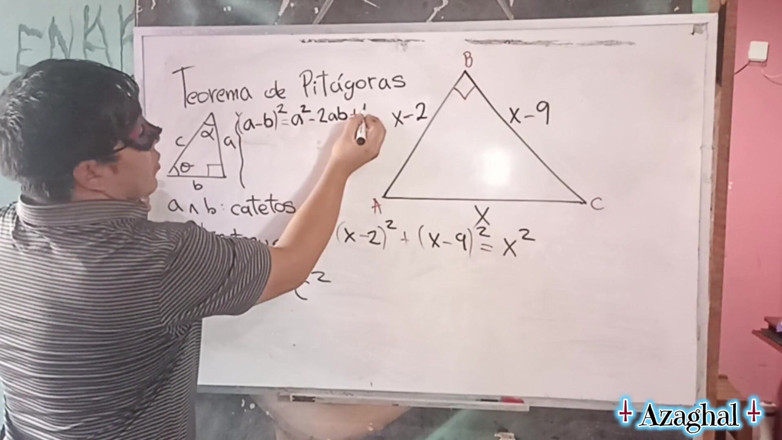 Teorema de Pitágoras
(a-b)²=a²-2ab+
c
α
a
θ
b
a∧b: catetos
B
x-2
x-9
A
x
C
(x-2)²+(x-9)²=x²
Azaghal